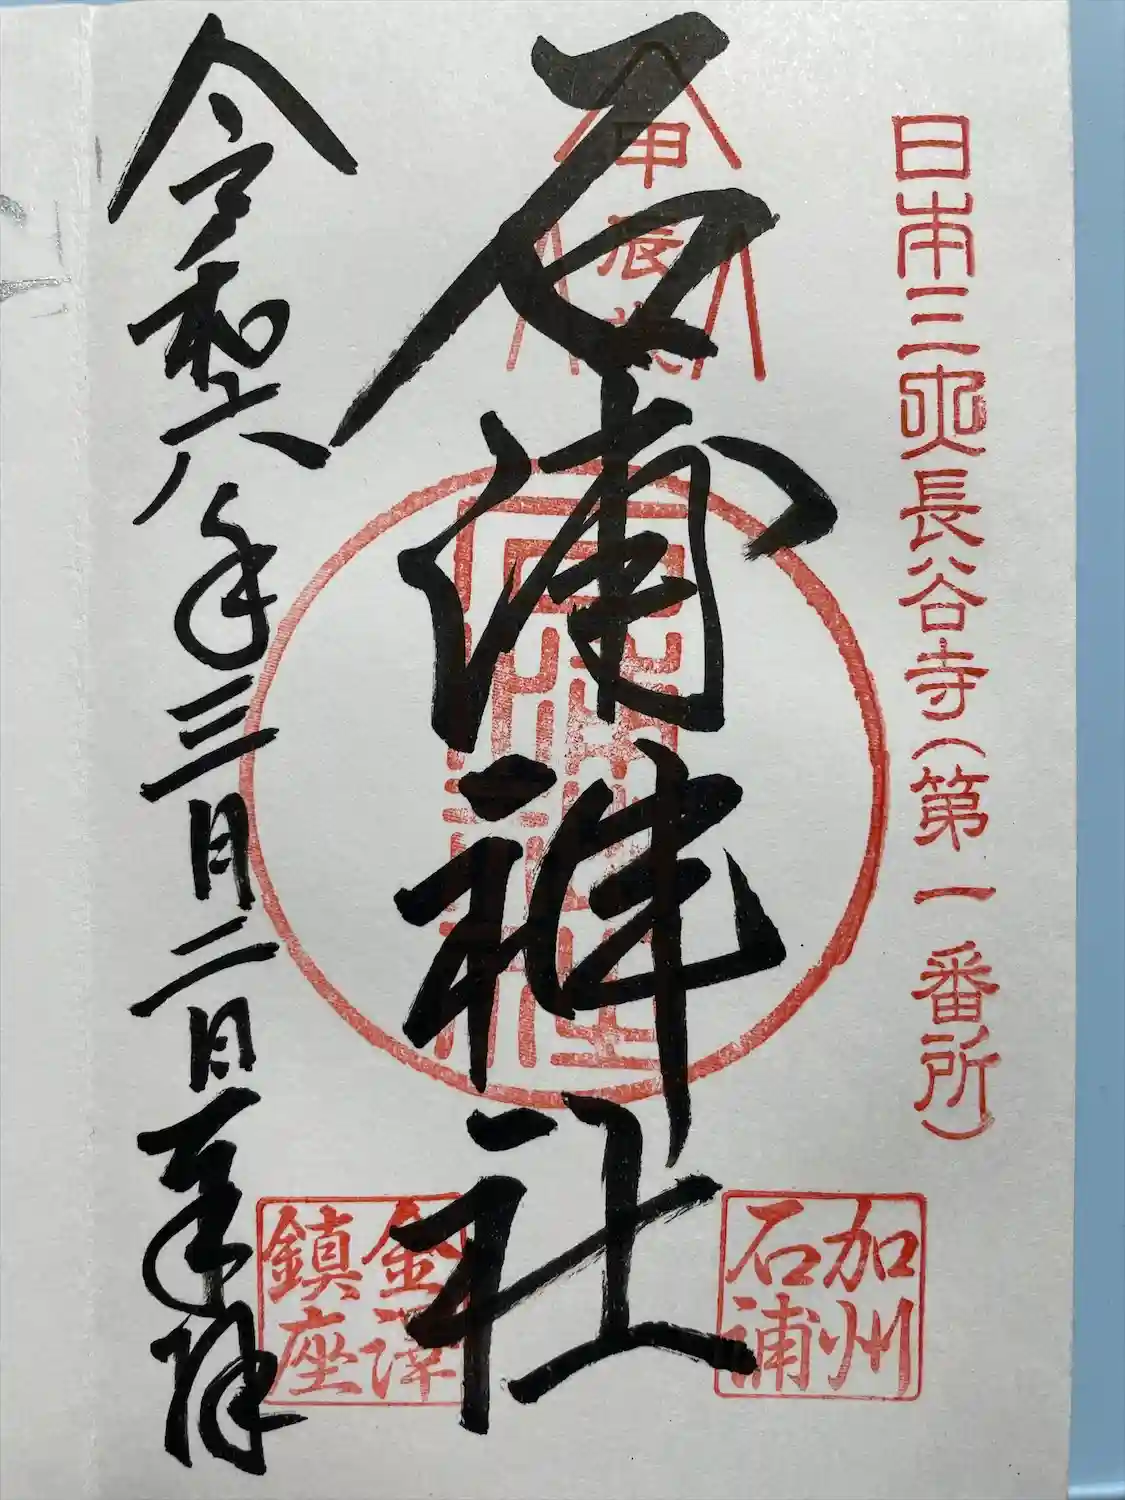 日本三大長谷寺(第一番所)
甲辰
石浦神社
加州
石浦
金澤
鎮座
令和六年三月二日奉拝